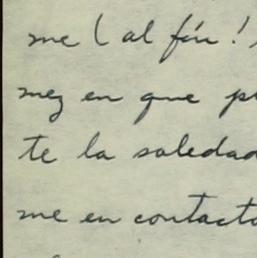 me (al fín!)
mez en que p
te la soledad
me en contacto